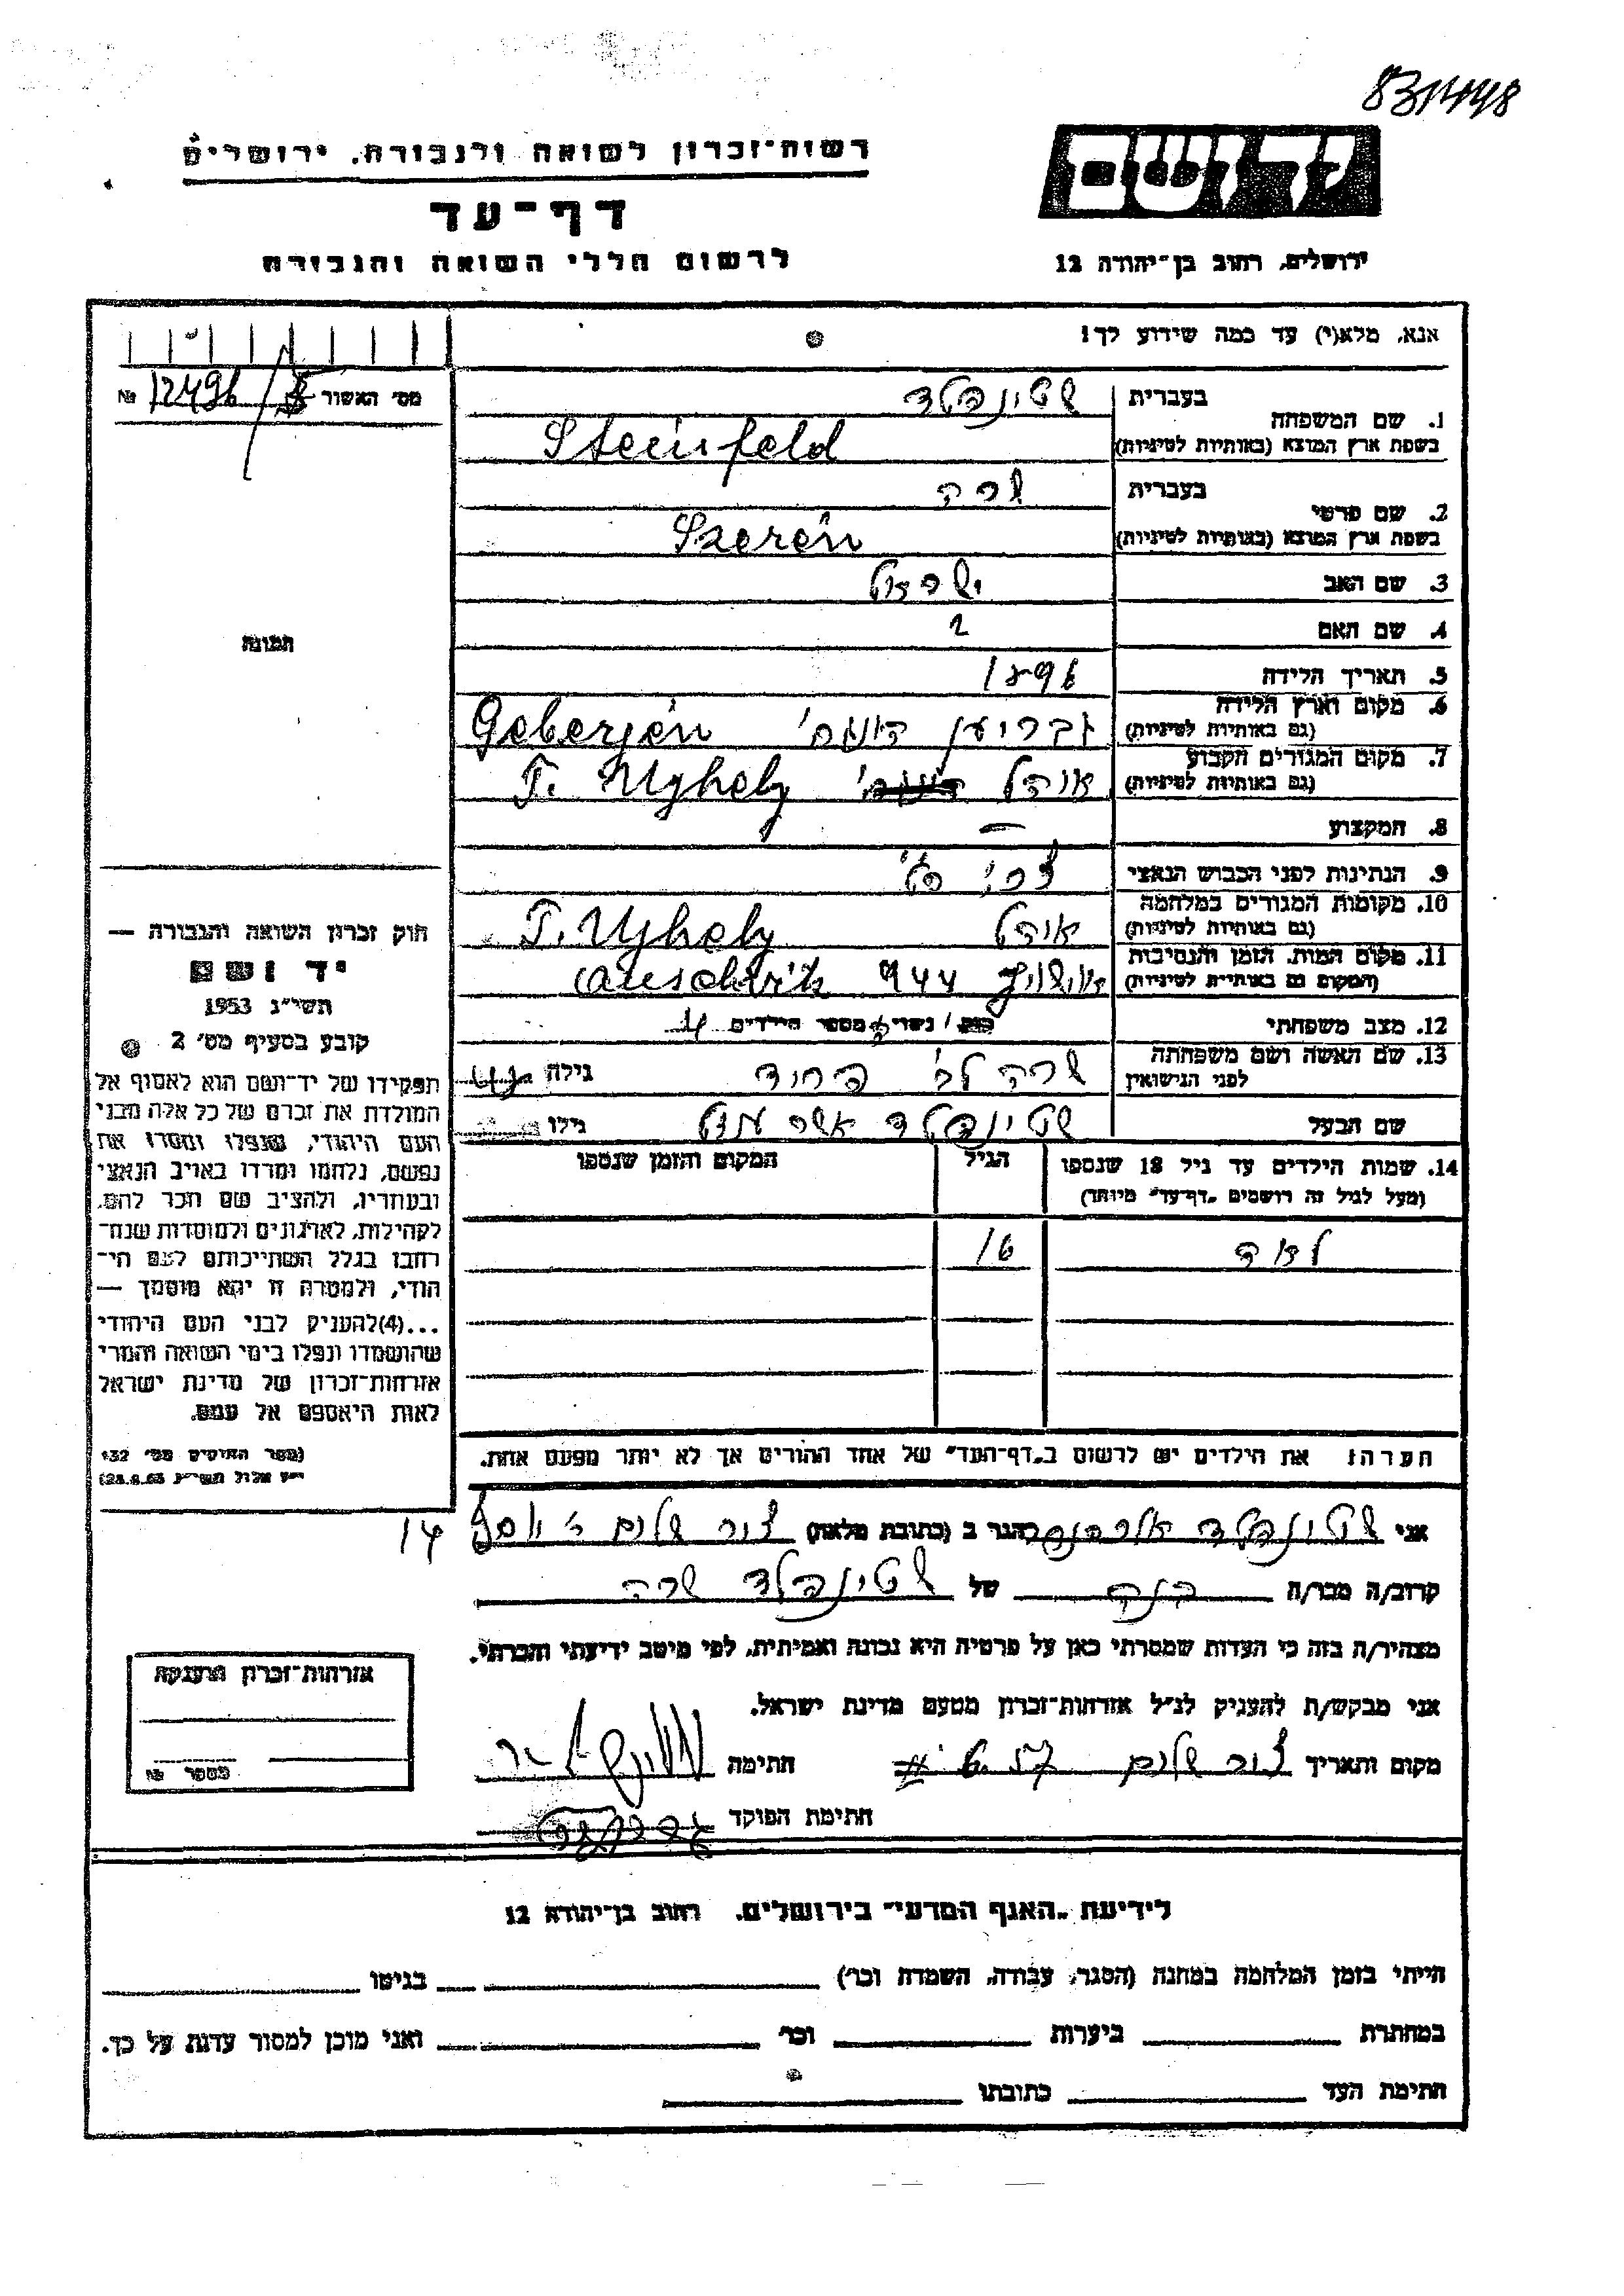 8311448
רשות־זכרון לשואה ולגבורה, ירושלים
יד ושם
דף־עד
לרשום חללי השואה והגבורה
ירושלים, רחוב בן־יהודה 12
אנא, מלא(י) עד כמה שידוע לך!
מס׳ האשור № 12496
1. שם המשפחה בעברית שטינפלד
בשפת ארץ המוצא (באותיות לטיניות) Steinfeld
2. שם פרטי בעברית שרה
בשפת ארץ המוצא (באותיות לטיניות) Szerén
3. שם האב ישראל
4. שם האם
תמונה
5. תאריך הלידה 1896
6. מקום וארץ הלידה (גם באותיות לטיניות) Geberjén
7. מקום המגורים הקבוע (גם באותיות לטיניות) אוהל T. Ujhely
8. המקצוע —
9. הנתינות לפני הכבוש הנאצי
10. מקומות המגורים במלחמה (גם באותיות לטיניות) אוהל T. Ujhely
11. מקום המות, הזמן והנסיבות (המקום גם באותיות לטיניות) אושויץ 944 Auschvitz
12. מצב משפחתי רוק / נשוי מספר הילדים 4
13. שם האשה ושם משפחתה לפני הנישואין שרה לב׳ גילה
שם הבעל שטינפלד אשר גילו
14. שמות הילדים עד גיל 18 שנספו הגיל המקום והזמן שנספו
(מעל לגיל זה רושמים „דף־עד״ מיוחד)
לאה 16
חוק זכרון השואה והגבורה —
יד ושם
תשי״ג 1953
קובע בסעיף מס׳ 2
תפקידו של יד־ושם הוא לאסוף אל
המולדת את זכרם של כל אלה מבני
העם היהודי, שנפלו ומסרו את
נפשם, נלחמו ומרדו באויב הנאצי
ובעוזריו, ולהציב שם וזכר להם,
לקהילות, לארגונים ולמוסדות שנח־
רבו בגלל השתייכותם לעם הי־
הודי, ולמטרה זו יהא מוסמך —
...(4)להעניק לבני העם היהודי
שהושמדו ונפלו בימי השואה והמרי
אזרחות־זכרון של מדינת ישראל
לאות היאספם אל עמם.
(ספר החוקים מס׳ 132
הערה: את הילדים יש לרשום ב„דף־העד״ של אחד ההורים אך לא יותר מפעם אחת.
אני שטינפלד הגר ב (כתובת מלאה) צור שלום 14
קרוב/ה מכר/ה בנה של שטינפלד שרה
מצהיר/ה בזה כי העדות שמסרתי כאן על פרטיה היא נכונה ואמיתית, לפי מיטב ידיעתי והכרתי.
אני מבקש/ת להעניק לנ״ל אזרחות־זכרון מטעם מדינת ישראל.
מקום ותאריך צור שלום חתימה
חתימת הפוקד
אזרחות־זכרון הוענקה
מספר №
לידיעת „האגף המדעי״ בירושלים, רחוב בן־יהודה 12
הייתי בזמן המלחמה במחנה (הסגר, עבודה, השמדה וכו׳) בגיטו
במחתרת ביערות וכו׳ ואני מוכן למסור עדות על כך.
חתימת העד כתובתו